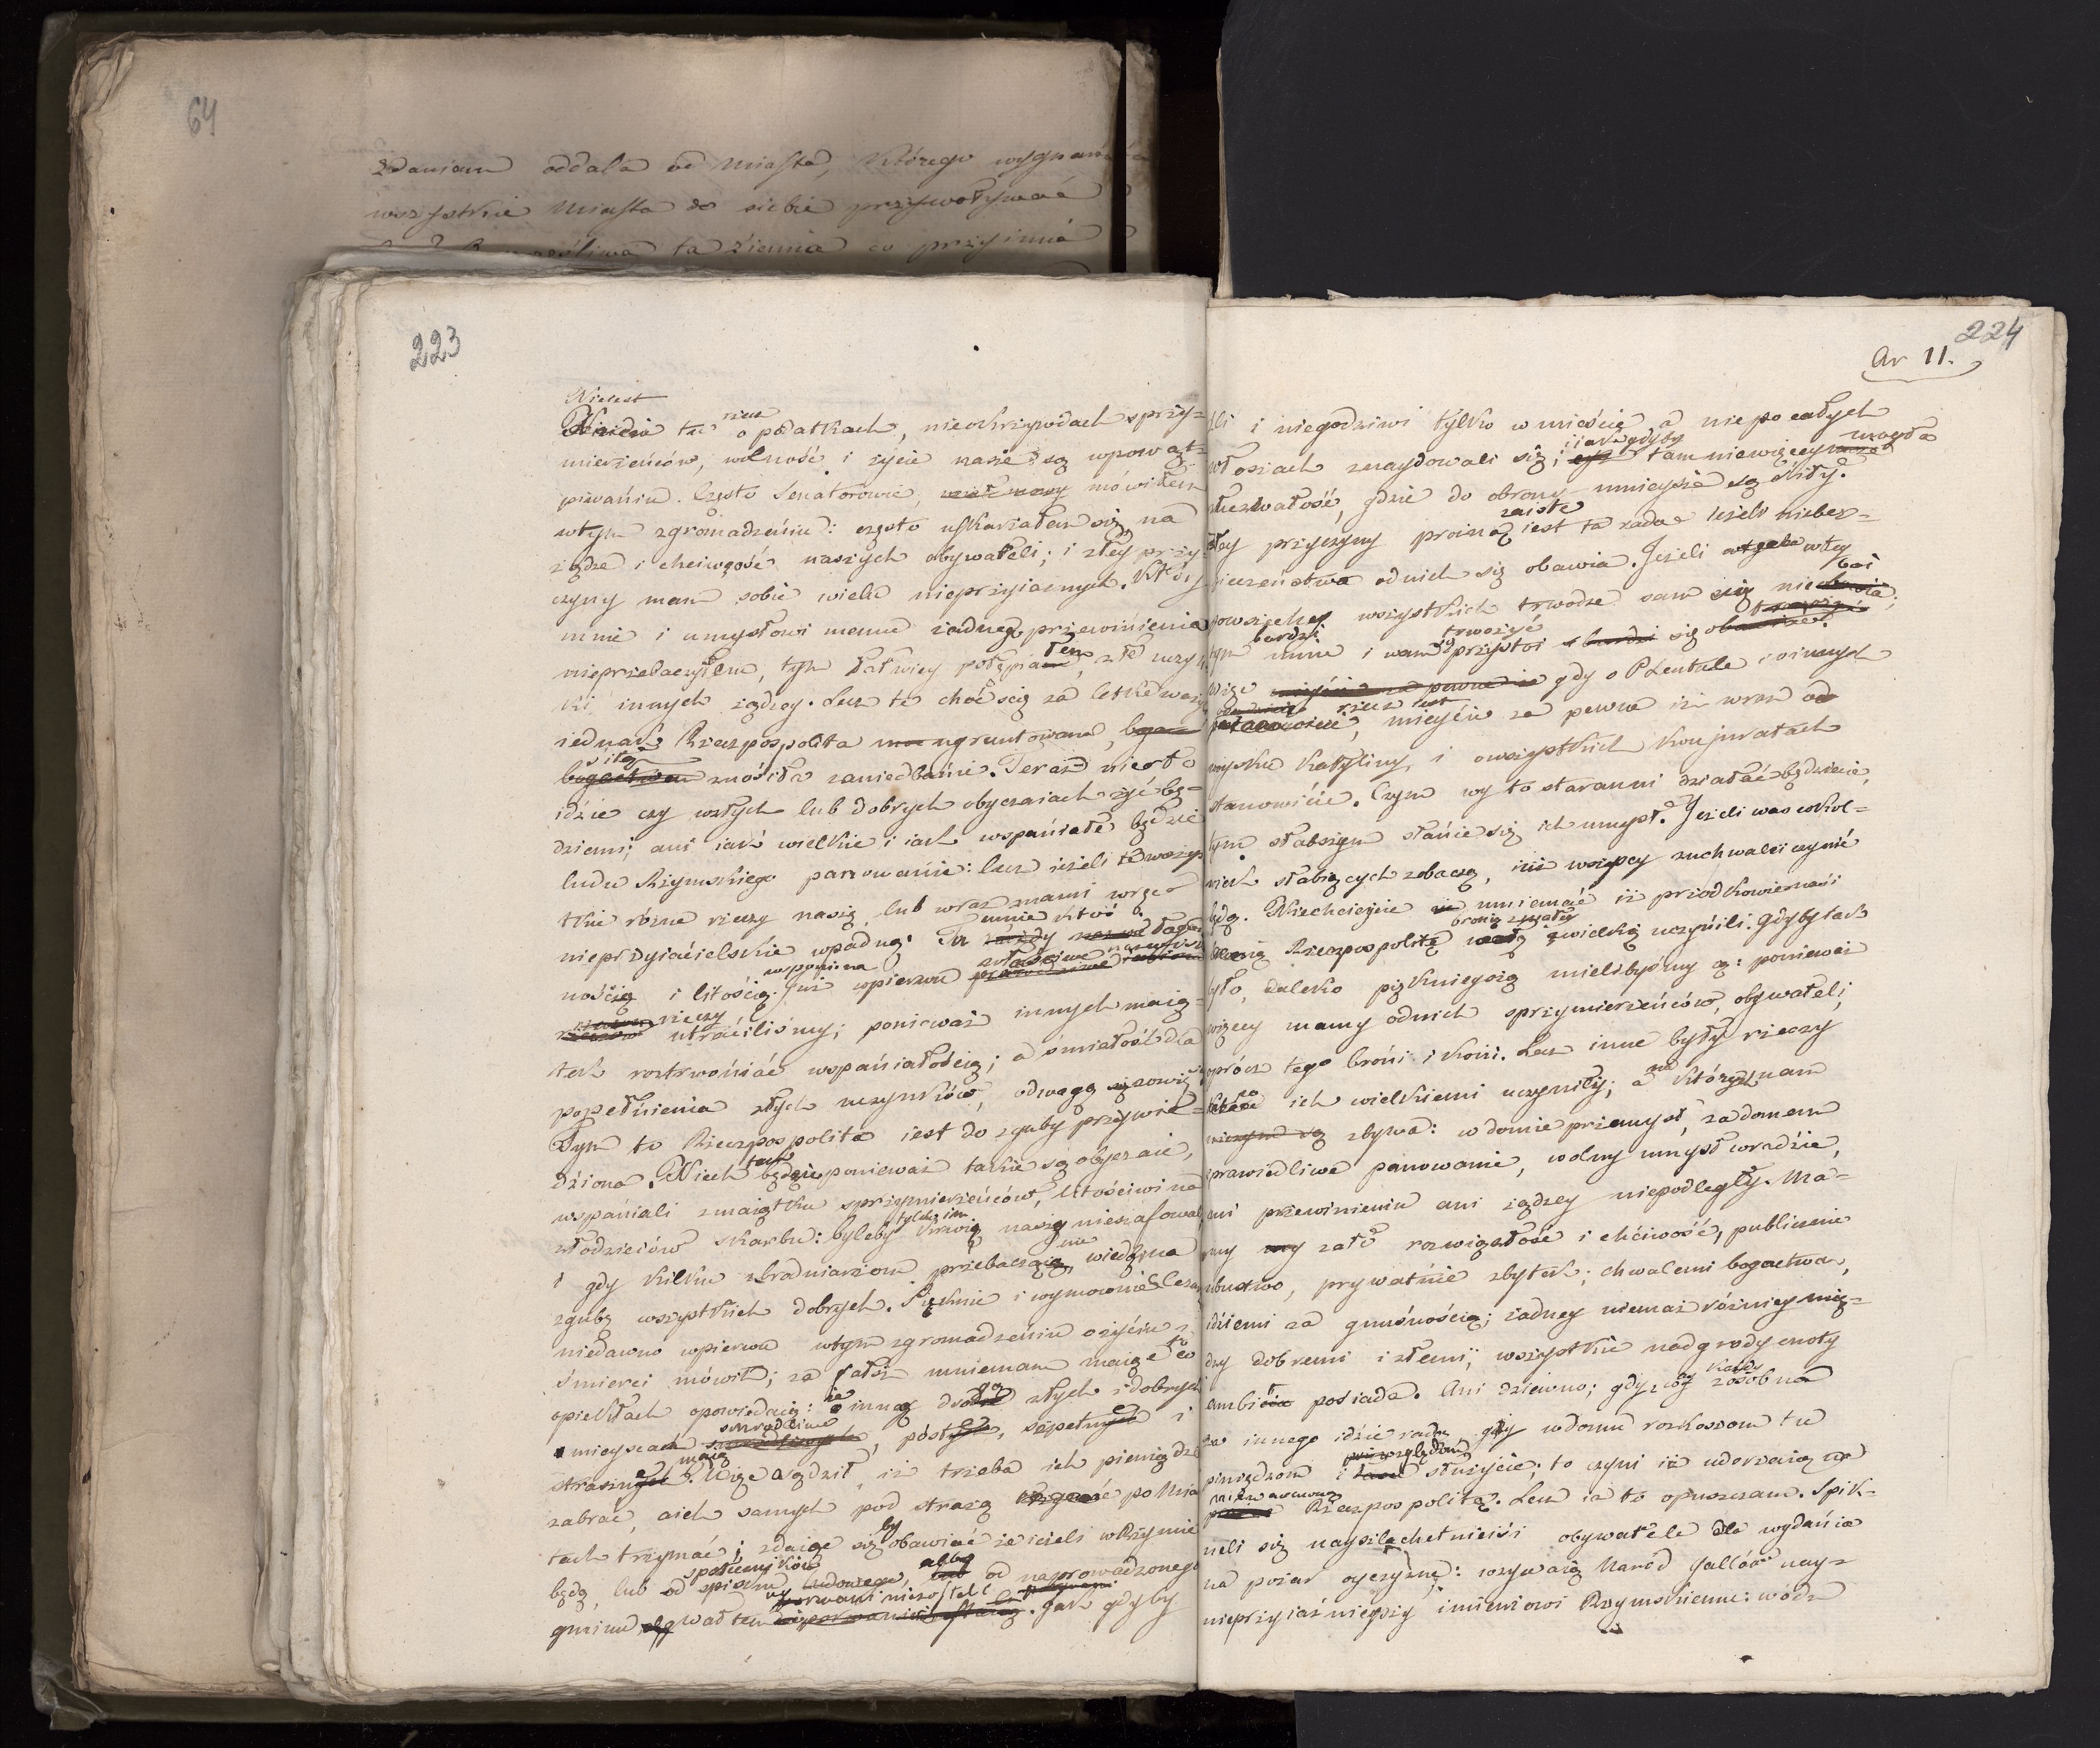 64
zdaniem oddala od Miasta, którego wygnan
wszystkie Miasta do siebie przyswoływać
ta ziemia co przyimie
223
Nie iest
tu rzecz o podatkach, nieokrzywdach sprzy=
mierzeńców, wolność i życie nasze są wpowąt=
piwaniu. Często Senatorowie, mówiłem
wtym zgromadzeniu: często uskarżałem się na
żądze i chciwość naszych obywateli; i z tey przy
czyny mam sobie wielu nieprzyiaznych. Który
mnie i umysłowi memu żadnego przewinienia
nieprzebaczyłem, tym łatwiey potępiałem złe uczyn
ki innych żądzy. Lecz te choć scię za letkie waży
iednak Rzeczpospolita ugruntowana,
siłą znosiła zaniedbanie. Teraz nieoto
idzie czy wzłych lub dobrych obyczaiach żyć bę=
dziemy; ani iak wielkie i iak wspaniałe będzie
ludu Rzymskiego panowanie: lecz ieżeli te wszys
tkie różne rzeczy naszą lub wraz znami wręce
nieprzyiacielskie wpadną. Tu mnie ktoś łagod
nością i litością wspomina. Już wpierwey właściwe nazwiska
rzeczy utraciliśmy; ponieważ innych maią=
tek roztrwaniać wspaniałością; a śmiałość dla
popełnienia złych uczynków, odwagą zowią
Tym to Rzeczpospolita iest do zguby przywie=
dziona. Niech tak będzie ponieważ takie są obyczaie,
wspaniali zmaiątku sprzymierzeńców, litościwi na
złodzieiów skarbu: byleby tylko im krwią naszą nieszafowali
i gdy kilku zbrodniarzom przebaczaią, nie wiedli na
zgubę wszystkich dobrych. Pięknie i wymownie Cezar
niedawno wpierwey wtym zgromadzeniu o życiu i
śmierci mówił; za fałsz mniemam maiąc to co
opiekłach opowiadaią: że inną drogą złych i dobrych
mieyscach smrodliwe, póste, szpetne i
straszne maią. Więc osądził, iż trzeba ich pieniądze
zabrać, aich samych pod strażą po Mia
tach trzymać; zdaiąc się by obawiać że ieżeli w Rzymie
będą, lub od spólników spisku, albo od naprowadzonego
gminu gwałtem wyrwani niezostali. Jak gdyby
224
Ar 11.
źli i niegodziwi tylko wmieście a niepocałych
włoszach znaydowali się; i iakgdyby tam niewięcey mogła
zuchwałość, gdzie do obrony mnieysze są siły.
z tey przyczyny prożna zaiste iest ta rada ieżeli niebez=
pieczeństwa od nich się obawia. Jeżeli wtey
powszechney wszystkich trwodze sam się nieboi;
tym bardziey mnie i wam trwożyć się przystoi
Więc gdy o P Lentule i oinnych
rzecz iest, mieycie za pewne iż wraz o
woysku Katyliny, i owszystkich konjuratach
stanowicie. Czym wy to staranniey działać będziecie,
tym słabszym stanie się ich umysł. Jeżeli was cokol=
wiek słabiących zobaczą, iuż wszyscy zuchwalei czynić
będą. Niechcieycie mniemać iż przodkowie nasi
bronią Rzeczpospolitę z małey wielką uczynili. Gdyby tak
było, daleko piękniejszą mielibyśmy ią: ponieważ
więcey mamy od nich sprzymierzeńców, obywateli;
oprócz tego broni i koni. Lecz inne były rzeczy
co ich wielkiemi uczyniły; a na których nam
zbywa: wdomie przemysł, zadomem
sprawiedliwe panowanie, wolny umysł wradzie,
ani przewinieniu ani żądzey niepodległy. Ma=
my za to rozwiązłość i chciwość, publicznie
ubustwo, prywatnie zbytek; chwalemi bogactwa,
idziemi za gnuśnością; żadney niemasz różnicy mię=
dzy dobremi i złemi; wszystkie nadgrody cnoty
ambicia posiada. Ani dziwno; gdy każdy zosobna
ze innego idzie rada, gdy wdomu roskoszom tu
pieniądzom i względom służycie; to czyni iż uderzaią na
Rzeczpospolitę. Lecz ia to opuszczam. Spik=
neli się nayszlachetnieisi obywatele dla wydania
na pożar oyczyznę: wzywaią Naród Gallów nay=
nieprzyiaźnieyszy imieniowi Rzymskiemu: wódz